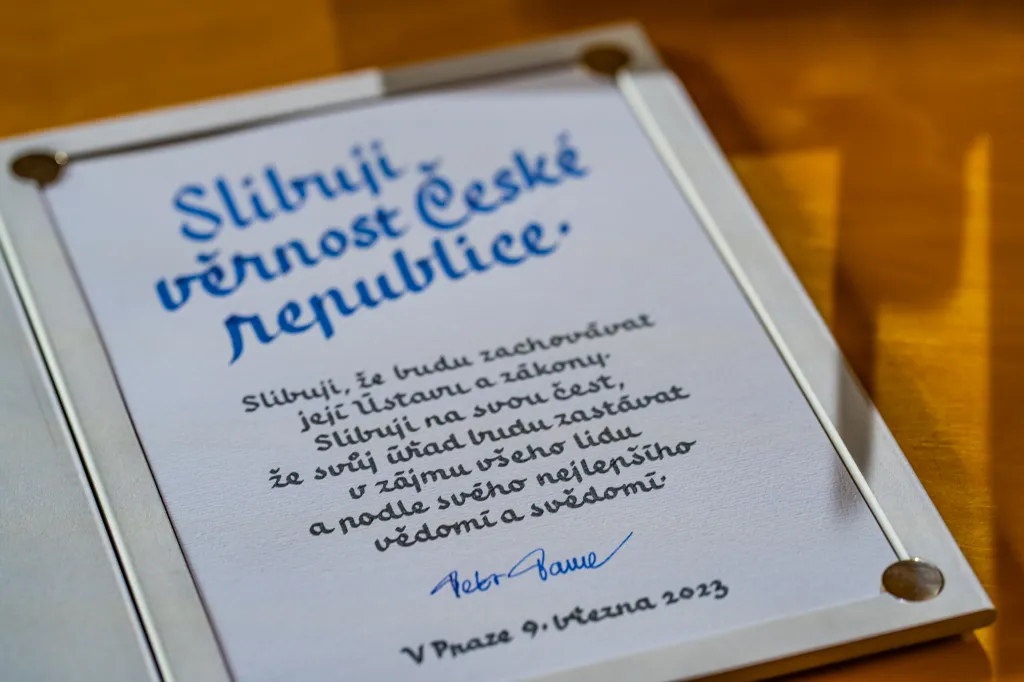 Slibuji
věrnost České
republice.
Slibuji, že budu zachovávat
její Ústavu a zákony.
Slibuji na svou čest,
že svůj úřad budu zastávat
v zájmu všeho lidu
a podle svého nejlepšího
vědomí a svědomí.
Petr Pavel
V Praze 9. března 2023